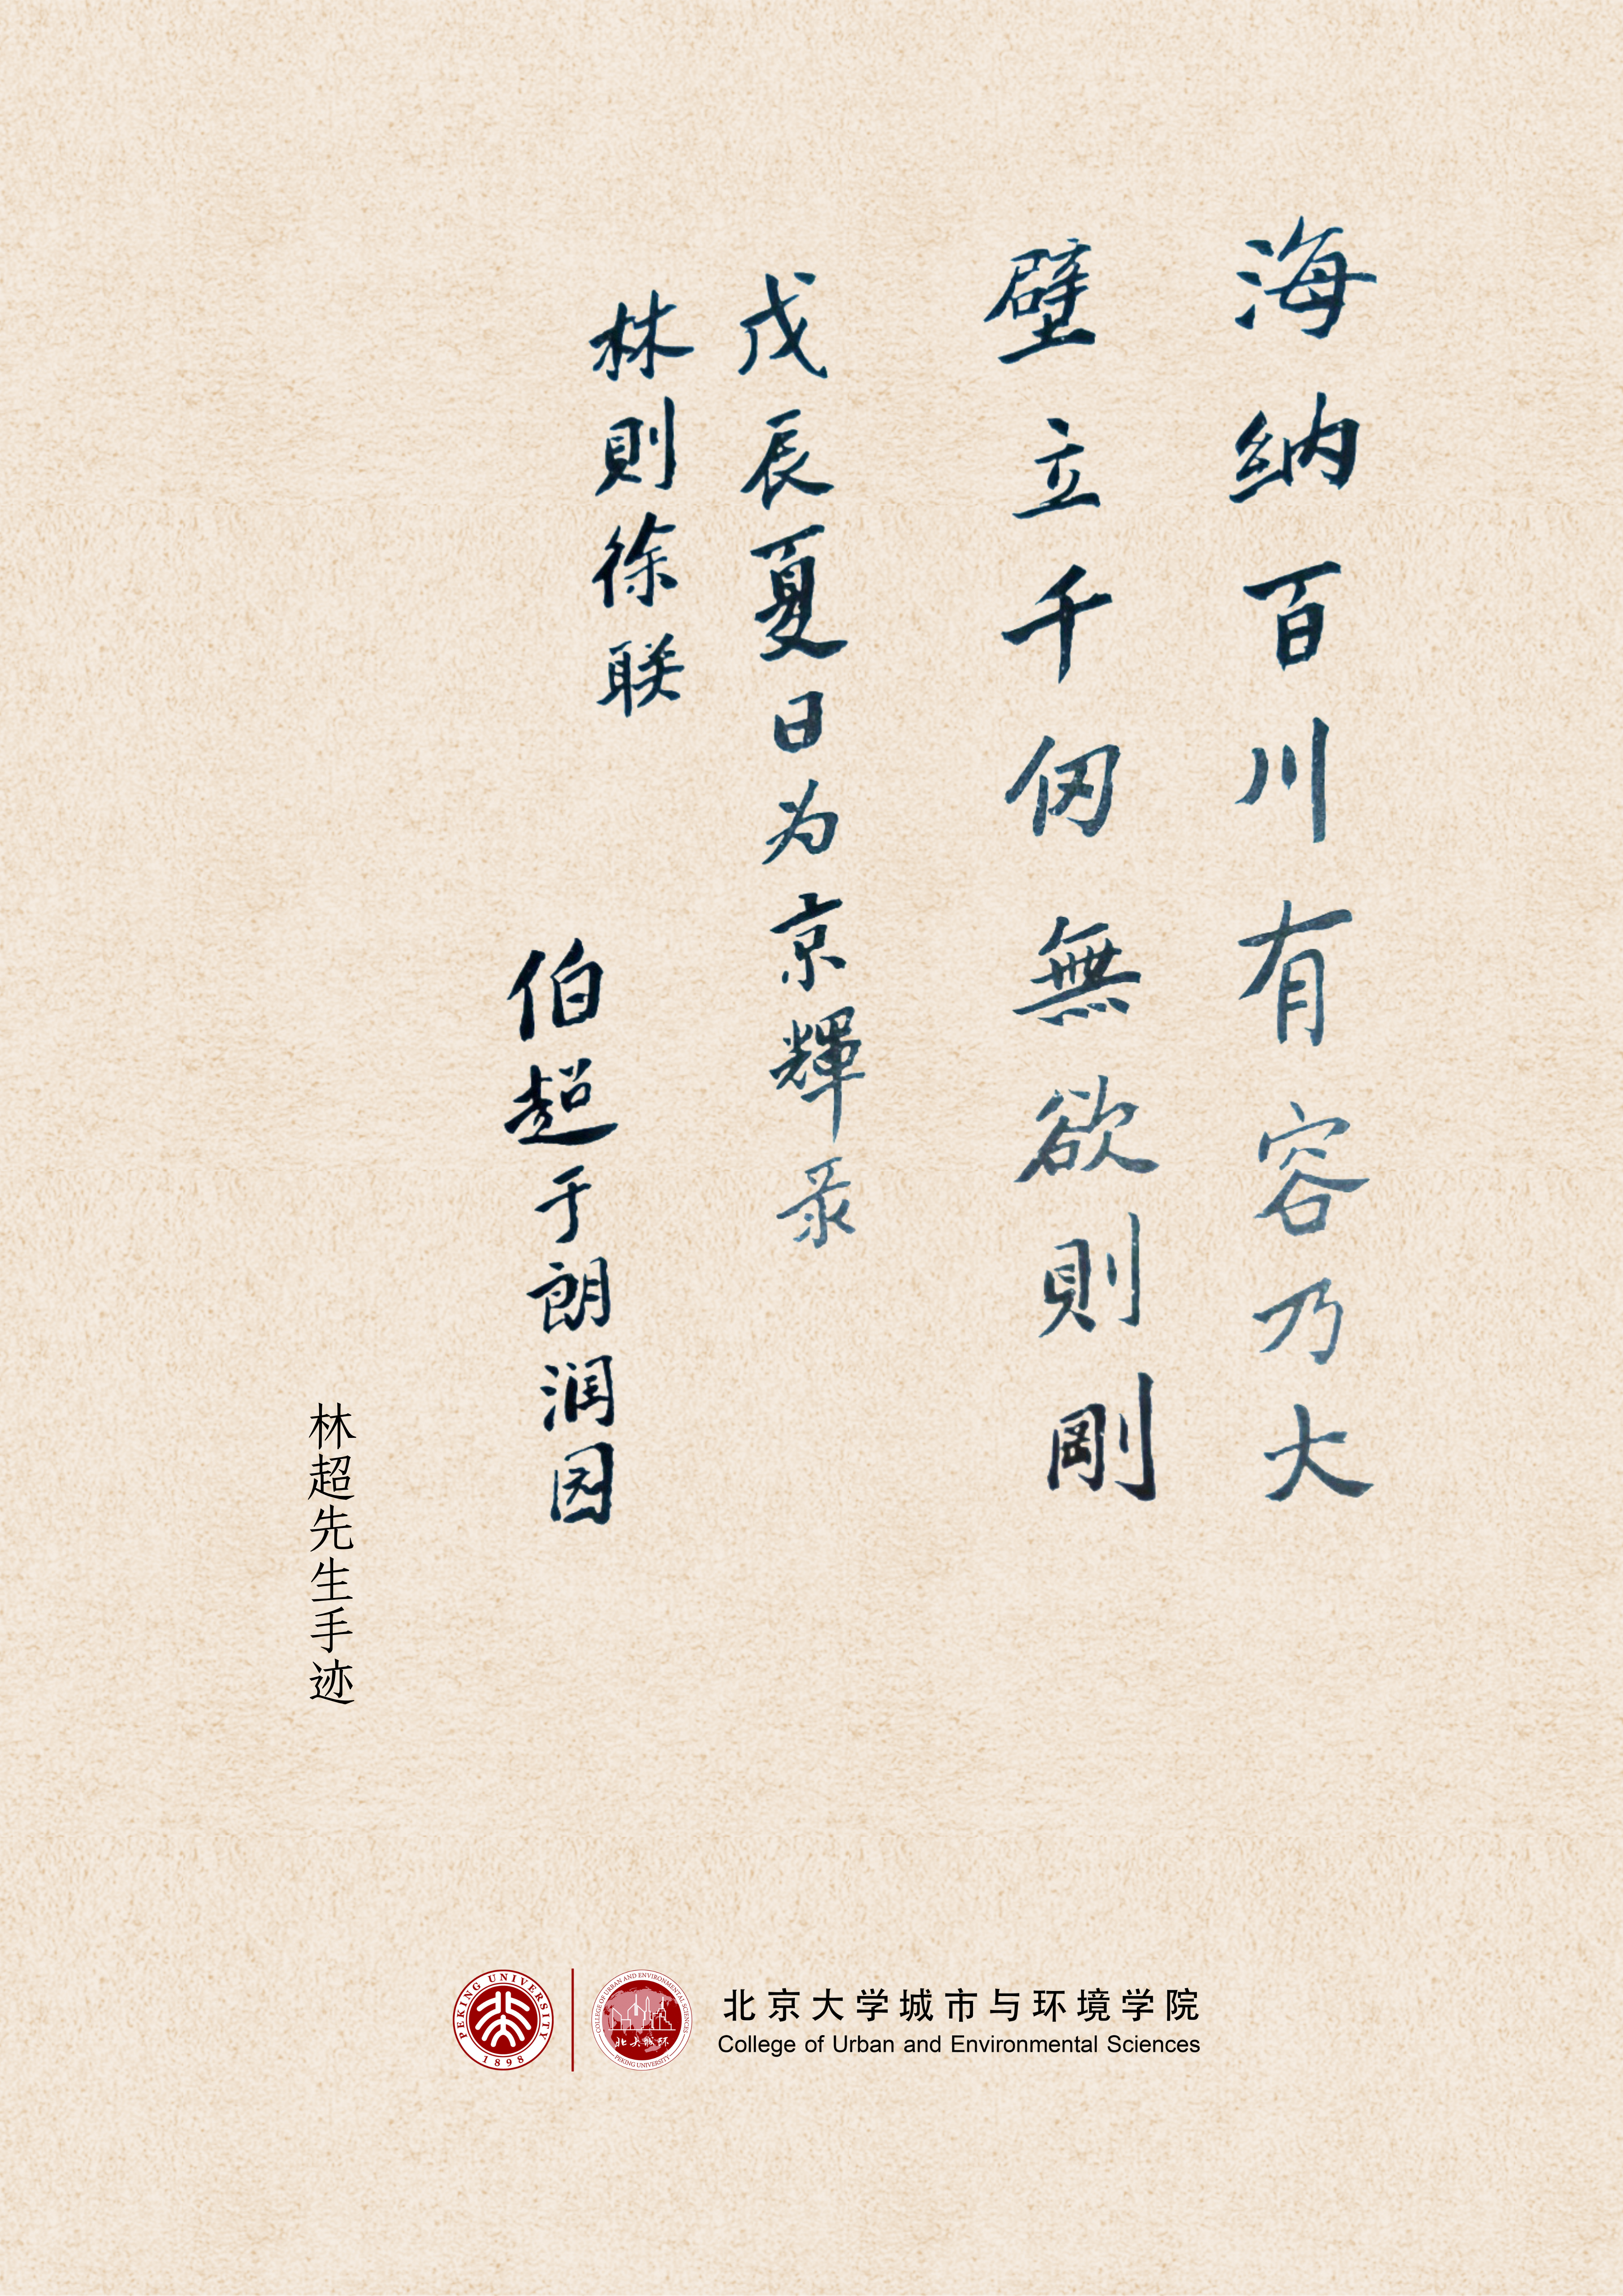 海納百川有容乃大
壁立千仞無欲則剛
戊辰夏日为京輝录
林則徐联
伯超于朗润园
林超先生手迹
PEKING UNIVERSITY
1898
COLLEGE OF URBAN AND ENVIRONMENTAL SCIENCES
北大城环
PEKING UNIVERSITY
北京大学城市与环境学院
College of Urban and Environmental Sciences